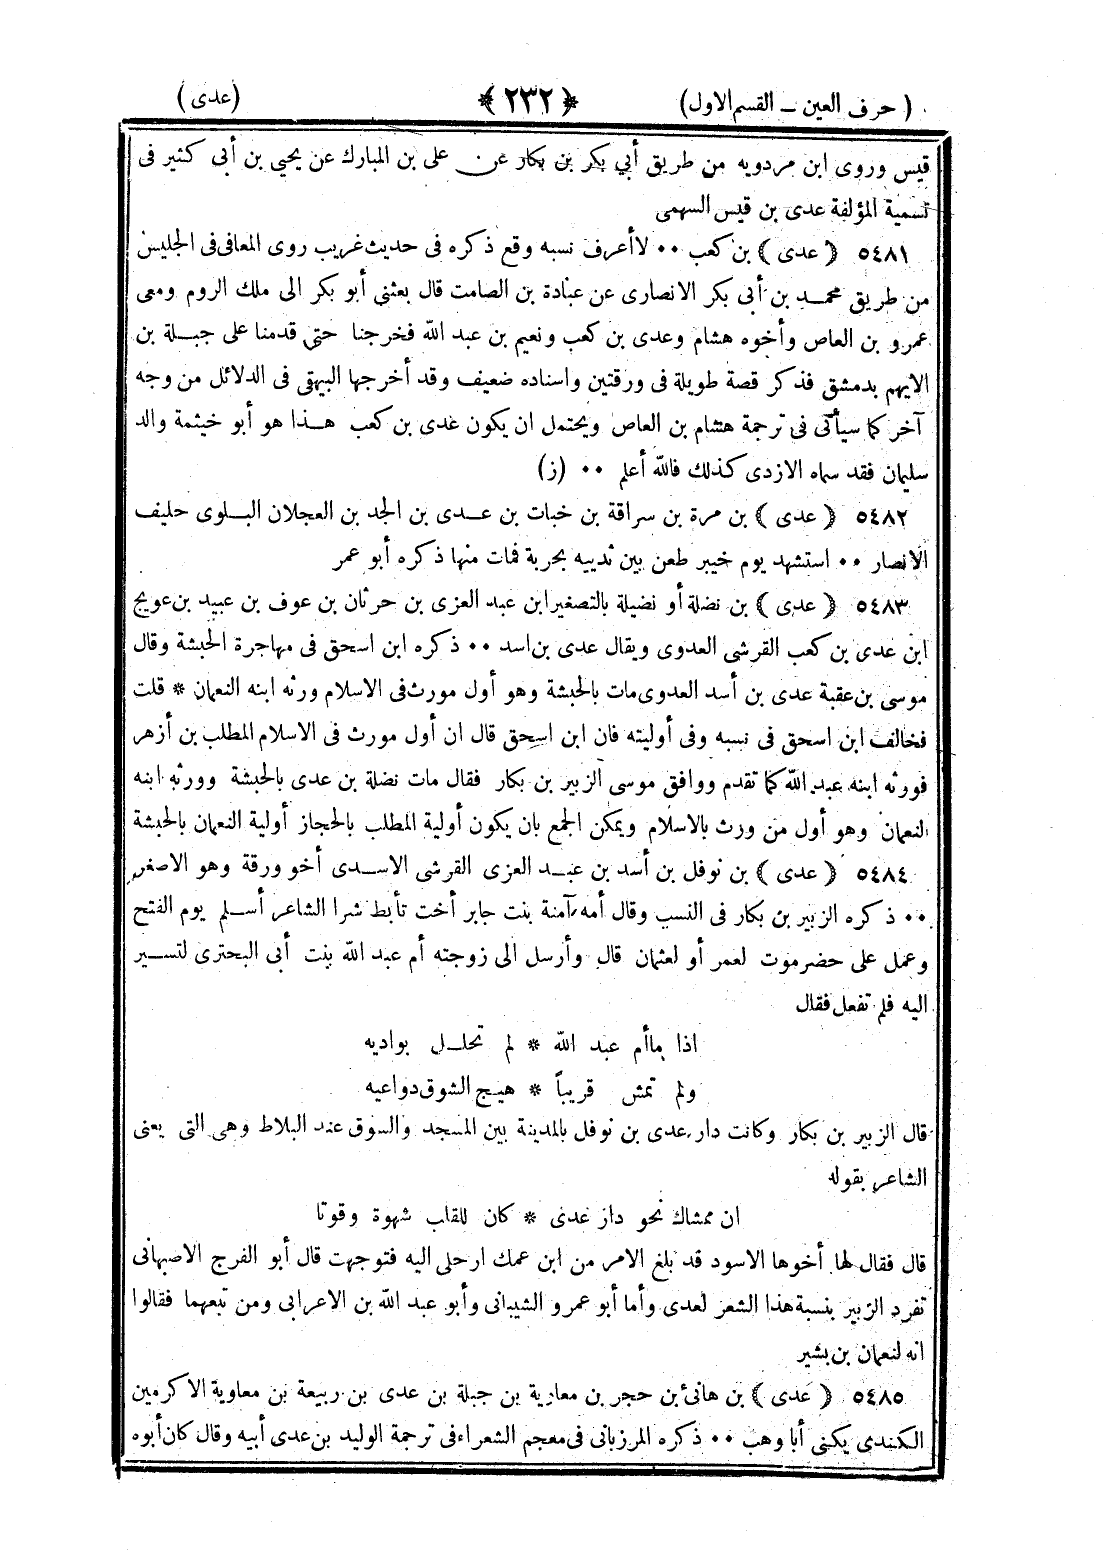 ( حرف العين – القسم الاول) ﴿ ٢٣٢ ﴾ (عدى)
قيس وروى ابن مردويه من طريق أبي بكر بن بكار عن على بن المبارك عن يحيى بن أبى كثير فى
تسمية المؤلفة عدى بن قيس السهمى
٥٤٨١ ﴿ عدى ﴾ بن كعب ٠٠ لاأعرف نسبه وقع ذكره فى حديث غريب روى المعافى فى الجليس
من طريق محمد بن أبي بكر الانصارى عن عبادة بن الصامت قال بعثنى أبو بكر الى ملك الروم ومعى
عمرو بن العاص وأخوه هشام وعدى بن كعب ونعيم بن عبد الله فخرجنا حتى قدمنا على جبلة بن
الايهم بدمشق فذكر قصة طويلة فى ورقتين واسناده ضعيف وقد أخرجها البيهقى فى الدلائل من وجه
آخر كما سيأتى فى ترجمة هشام بن العاص ويحتمل ان يكون عدى بن كعب هذا هو أبو خيثمة والد
سليمان فقد سماه الازدى كذلك فالله أعلم ٠٠ (ز)
٥٤٨٢ ﴿ عدى ﴾ بن مرة بن سراقة بن خبات بن عدى بن الجد بن العجلان البلوى حليف
الانصار ٠٠ استشهد يوم خيبر طعن بين ثدييه بحربة فمات منها ذكره أبو عمر
٥٤٨٣ ﴿ عدى ﴾ بن نضلة أو نضيلة بالتصغير ابن عبد العزى بن حرثان بن عوف بن عبيد بن عويج
ابن عدى بن كعب القرشى العدوى ويقال عدى بن اسد ٠٠ ذكره ابن اسحق فى مهاجرة الحبشة وقال
موسى بن عقبة عدى بن أسد العدوى مات بالحبشة وهو أول مورث فى الاسلام ورثه ابنه النعمان * قلت
فخالف ابن اسحق فى نسبه وفى أوليته فان ابن اسحق قال ان أول مورث فى الاسلام المطلب بن أزهر
فورثه ابنه عبد الله كما تقدم ووافق موسى الزبير بن بكار فقال مات نضلة بن عدى بالحبشة وورثه ابنه
النعمان وهو أول من ورث بالاسلام ويمكن الجمع بان يكون أولية المطلب بالحجاز أولية النعمان بالحبشة
٥٤٨٤ ﴿ عدى ﴾ بن نوفل بن أسد بن عبد العزى القرشى الاسدى أخو ورقة وهو الاصغر
٠٠ ذكره الزبير بن بكار فى النسب وقال أمه آمنة بنت جابر أخت تأبط شرا الشاعر أسلم يوم الفتح
وعمل على حضرموت لعمر أو لعثمان قال وأرسل الى زوجته أم عبد الله بنت أبى البحترى لتسير
اليه فلم تفعل فقال
اذا ماأم عبد الله * لم تحلل بواديه
ولم تمش قريباً * هيج الشوق دواعيه
قال الزبير بن بكار وكانت دار عدى بن نوفل بالمدينة بين المسجد والسوق عند البلاط وهى التى يعنى
الشاعر بقوله
ان ممشاك نحو دار عدى * كان للقلب شهوة وقوتا
قال فقال لها أخوها الاسود قد بلغ الامر من ابن عمك ارحلى اليه فتوجهت قال أبو الفرج الاصبهانى
تفرد الزبير بنسبة هذا الشعر لعدى وأما أبو عمرو الشيبانى وأبو عبد الله بن الاعرابى ومن تبعهما فقالوا
انه لنعمان بن بشير
٥٤٨٥ ﴿ عدى ﴾ بن هانئ بن حجر بن معاوية بن جبلة بن عدى بن ربيعة بن معاوية الاكرمين
الكندى يكنى أبا وهب ٠٠ ذكره المرزبانى فى معجم الشعراء فى ترجمة الوليد بن عدى أبيه وقال كان أبوه